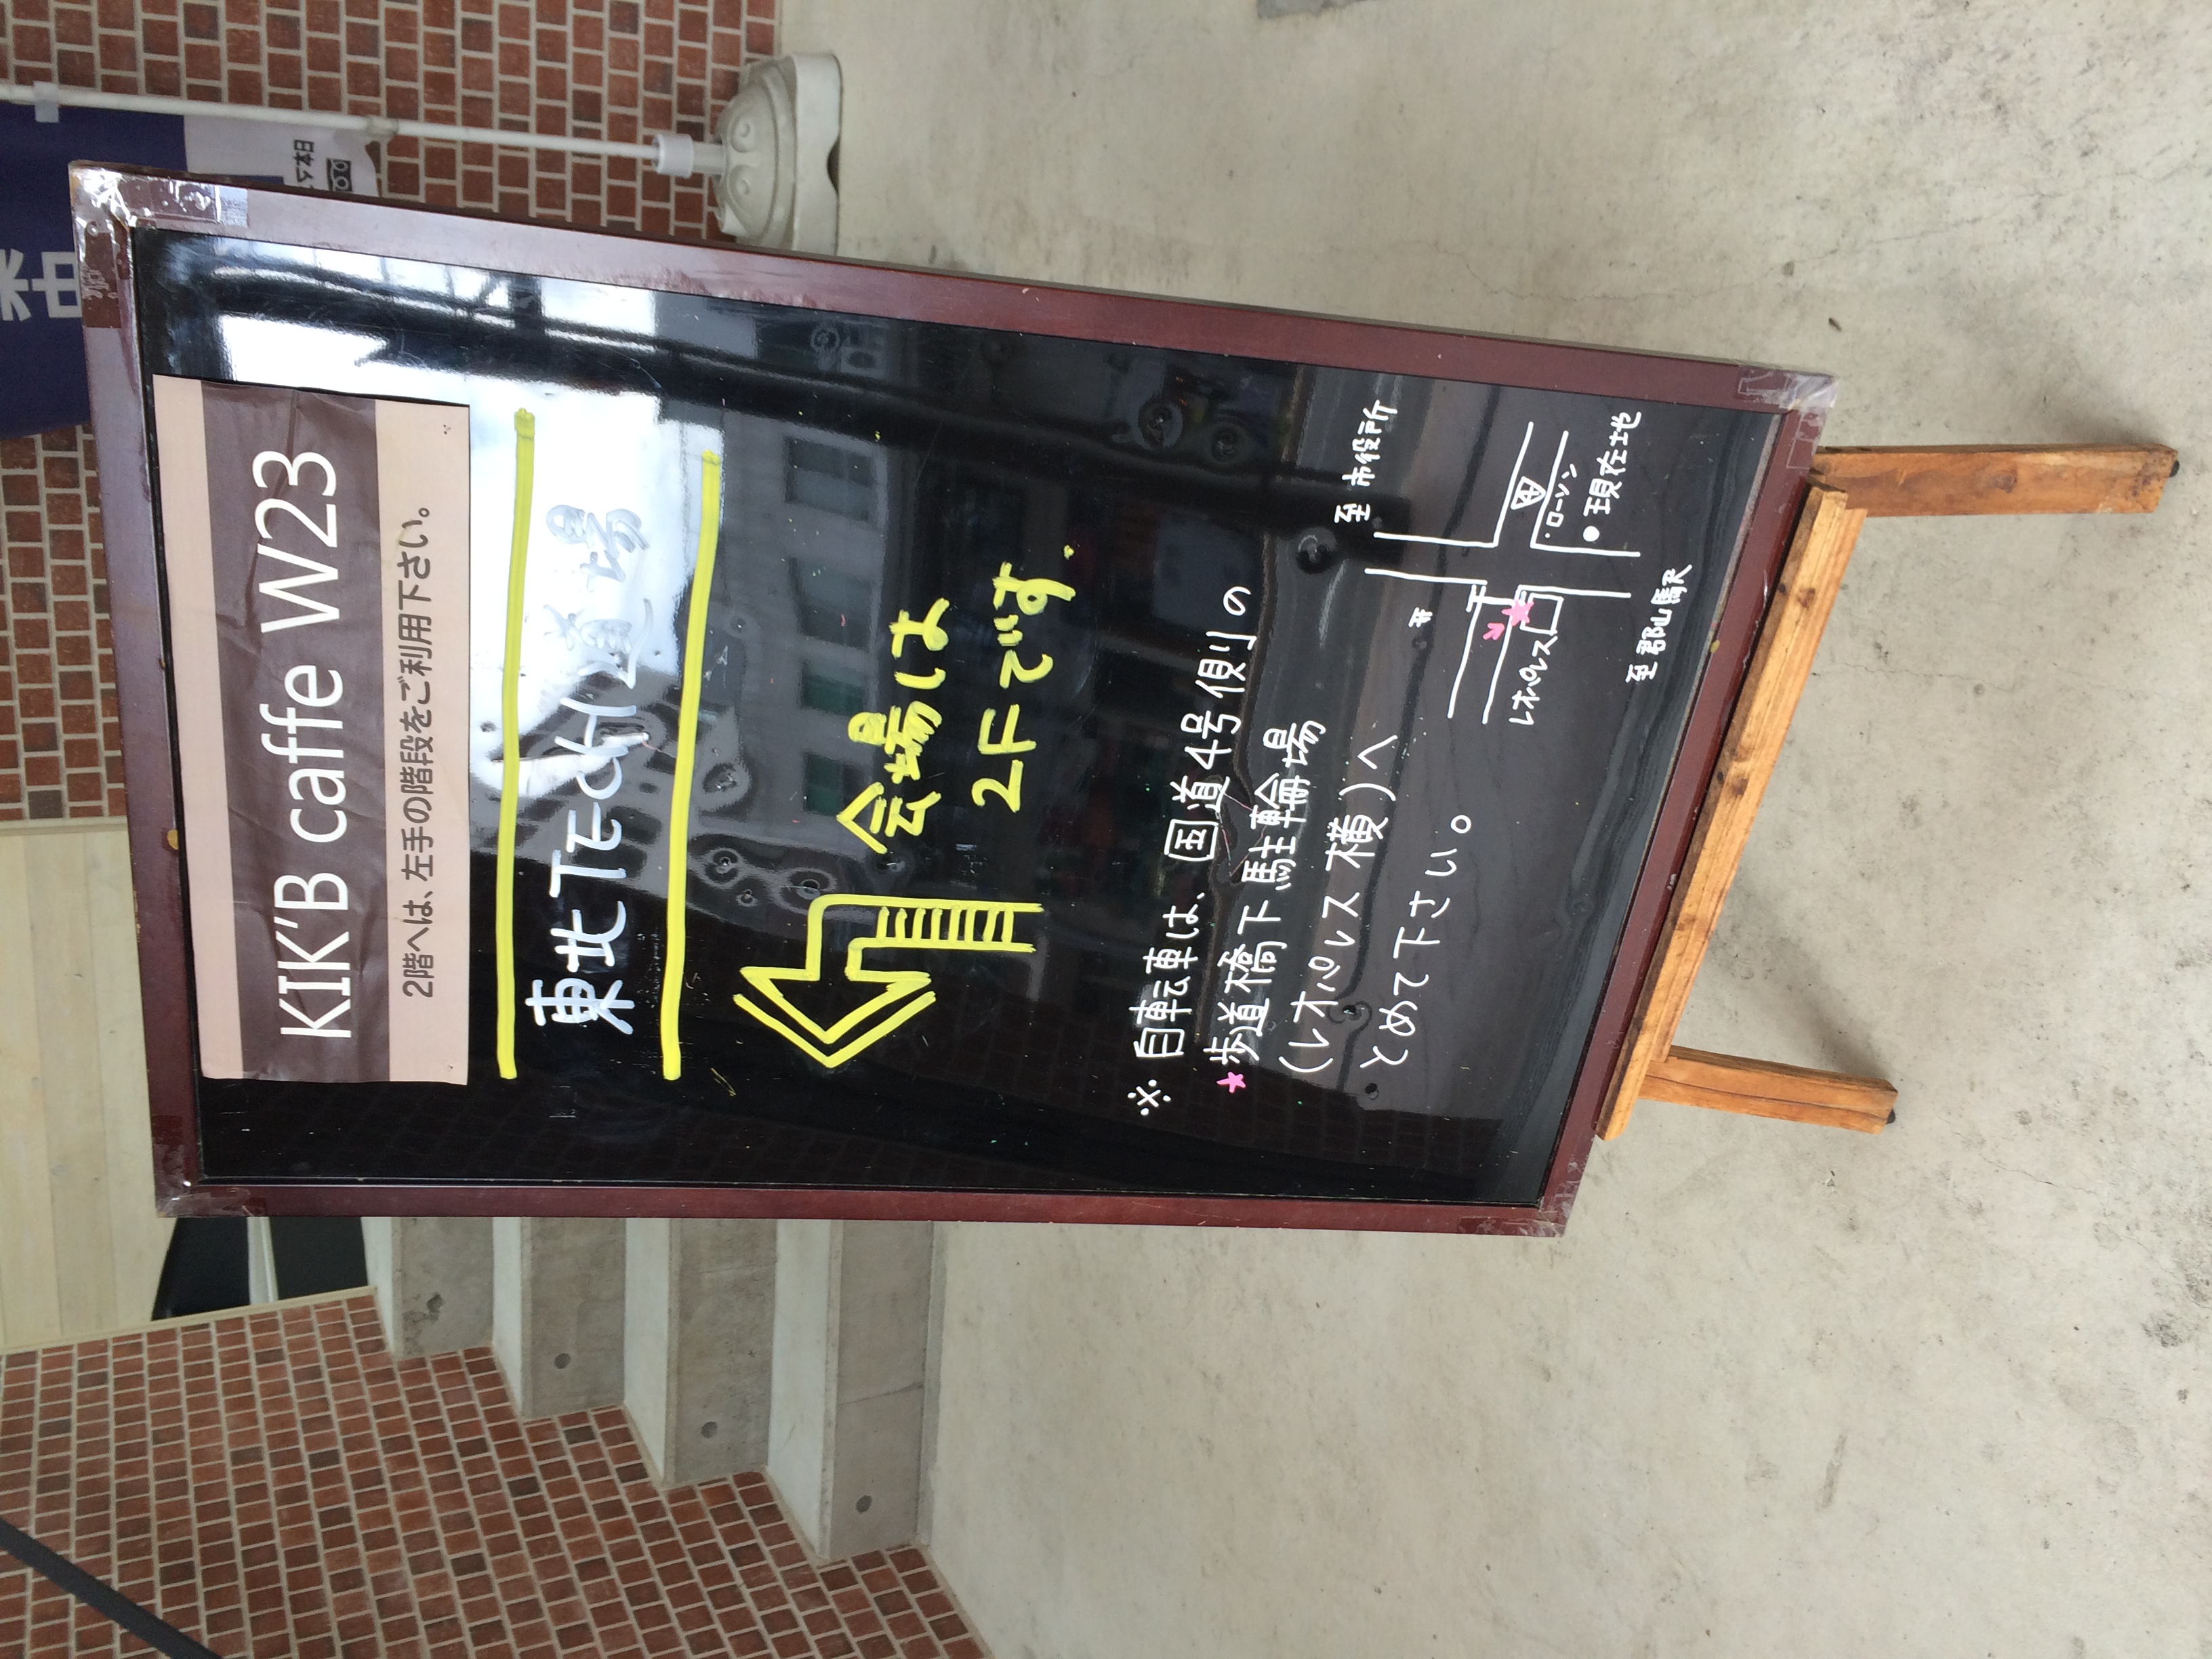 KIK'B caffe W23
2階へは、左手の階段をご利用下さい。
東北TECH道場
会場は
2Fです.
※ 自転車は、国道4号側の
★歩道橋下駐輪場
(レオパレス横)へ
とめて下さい。
至 市役所
レオパレス
4
・ローソン
●現在地
至郡山駅
中
日本